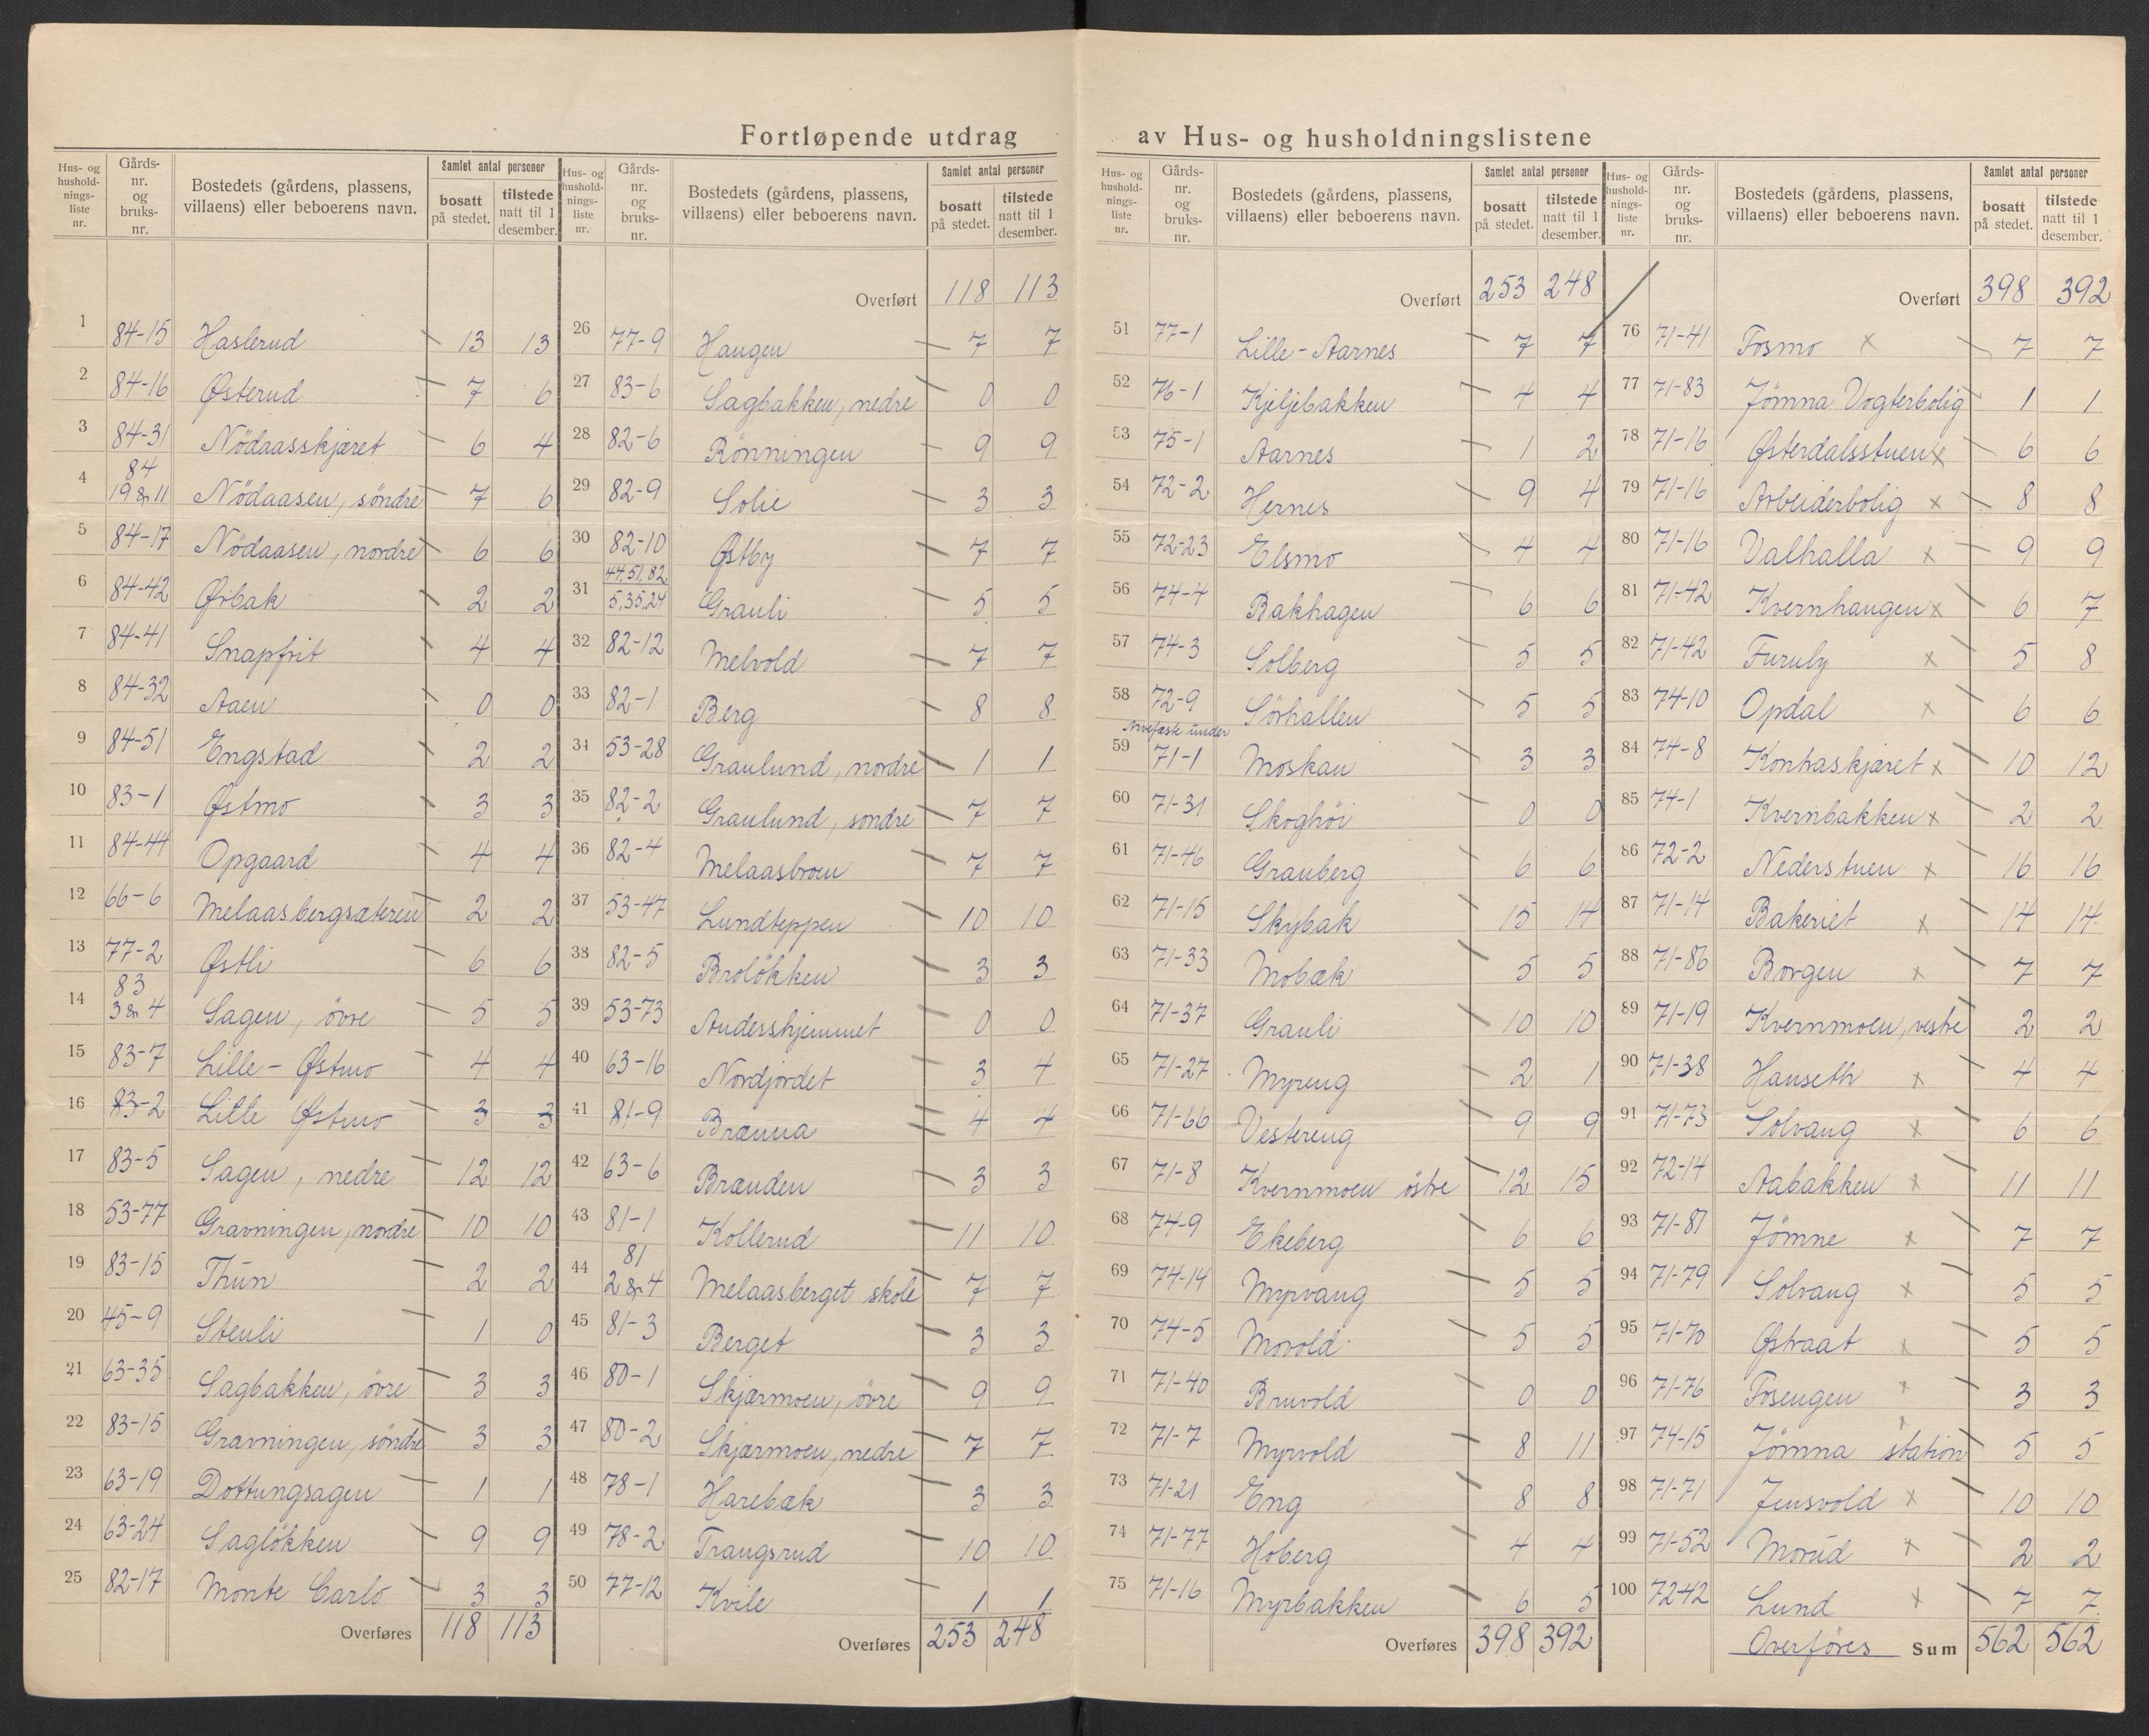 Fortløpende utdrag av Hus- og husholdningslistene
Hus- og husholdningsliste nr. | Gårdsnr. og bruksnr. | Bostedets (gårdens, plassens, villaens) eller beboerens navn. | Samlet antal personer | bosatt på stedet. | tilstede natt til 1 desember.
1 84-15 Haslerud 13 13
2 84-16 Østerud 7 6
3 84-31 Nödaasskjæret 6 4
4 84 19 & 11 Nödaasen, söndre 7 6
5 84-17 Nödaasen, nordre 6 6
6 84-42 Ørbak 2 2
7 84-41 Snapfrit 4 4
8 84-32 Aaen 0 0
9 84-51 Engstad 2 2
10 83-1 Østmo 3 3
11 84-44 Opgaard 4 4
12 66-6 Melaasbergsæteren 2 2
13 77-2 Østli 6 6
14 83 3 & 4 Sagen, övre 5 5
15 83-7 Lille-Østmo 4 4
16 83-2 Lille Østmo 3 3
17 83-5 Sagen, nedre 12 12
18 53-77 Gravningen, nordre 10 10
19 83-15 Thun 2 2
20 45-9 Stenli 1 0
21 63-35 Sagbakken, övre 3 3
22 83-15 Gravningen, söndre 3 3
23 63-19 Dottungsagen 1 1
24 63-24 Saglökken 9 9
25 82-17 Monte Carlo 3 3
Overføres 118 113
Hus- og husholdningsliste nr. | Gårdsnr. og bruksnr. | Bostedets (gårdens, plassens, villaens) eller beboerens navn. | Samlet antal personer | bosatt på stedet. | tilstede natt til 1 desember.
Overført 118 113
26 77-9 Haugen 7 7
27 83-6 Sagbakken, nedre 0 0
28 82-6 Rönningen 9 9
29 82-9 Solie 3 3
30 82-10 Østby 7 7
31 44,51,82 5,35,24 Grauli 5 5
32 82-12 Melvold 7 7
33 82-1 Berg 8 8
34 53-28 Graulund, nordre 1 1
35 82-2 Graulund, söndre 7 7
36 82-4 Melaasbroen 7 7
37 53-47 Lundteppen 10 10
38 82-5 Brolökken 3 3
39 53-73 Andershjemmet 0 0
40 63-16 Nordjordet 3 4
41 81-9 Brænna 4 4
42 63-6 Brænden 3 3
43 81-1 Kollerud 11 10
44 81 2 & 4 Melaasberget skole 7 7
45 81-3 Berget 3 3
46 80-1 Skjærmoen, övre 9 9
47 80-2 Skjærmoen, nedre 7 7
48 78-1 Harebæk 3 3
49 78-2 Trangsrud 10 10
50 77-12 Kvile 1 1
Overføres 253 248
Hus- og husholdningsliste nr. | Gårdsnr. og bruksnr. | Bostedets (gårdens, plassens, villaens) eller beboerens navn. | Samlet antal personer | bosatt på stedet. | tilstede natt til 1 desember.
Overført 253 248
51 77-1 Lille-Aarnes 7 7
52 76-1 Kjeljebakken 4 4
53 75-1 Aarnes 1 2
54 72-2 Hernes 9 4
55 72-23 Elsmo 4 4
56 74-4 Bakhagen 6 6
57 74-3 Solberg 5 5
58 72-9 Sörhallen 5 5
59 Arvefæste under 71-1 Moskau 3 3
60 71-31 Skoghöi 0 0
61 71-46 Grauberg 6 6
62 71-15 Skybak 15 14
63 71-33 Mobæk 5 5
64 71-37 Grauli 10 10
65 71-27 Myreng 2 1
66 71-66 Vestereng 9 9
67 71-8 Kvernmoen östre 12 15
68 74-9 Ekeberg 6 6
69 74-14 Myrvang 5 5
70 74-5 Movold 5 5
71 71-40 Bruvold 0 0
72 71-7 Myrvold 8 11
73 71-21 Eng 8 8
74 71-77 Hoberg 4 4
75 71-16 Myrbakken 6 5
Overføres 398 392
Hus- og husholdningsliste nr. | Gårdsnr. og bruksnr. | Bostedets (gårdens, plassens, villaens) eller beboerens navn. | Samlet antal personer | bosatt på stedet. | tilstede natt til 1 desember.
Overført 398 392
76 71-41 Fosmo x 7 7
77 71-83 Jömna Vogterbolig 1 1
78 71-16 Østerdalsstuen x 6 6
79 71-16 Arbeiderbolig x 8 8
80 71-16 Valhalla x 9 9
81 71-42 Kvernhaugen x 6 7
82 71-42 Furuly x 5 8
83 74-10 Opdal x 6 6
84 74-8 Konhaskjæret x 10 12
85 74-1 Kvernbakken x 2 2
86 72-2 Nederstuen x 16 16
87 71-14 Bakeriet x 14 14
88 71-86 Borgen x 7 7
89 71-19 Kvernmoen, vestre 2 2
90 71-38 Hanseth x 4 4
91 71-73 Solvang x 6 6
92 72-14 Aabakken x 11 11
93 71-87 Jömne x 7 7
94 71-79 Solvang x 5 5
95 71-70 Østraat x 5 5
96 71-76 Fosengen x 3 3
97 74-15 Jömna station x 5 5
98 71-71 Jensvold x 10 10
99 71-52 Morud x 2 2
100 72-42 Lund x 7 7
Overföres Sum 562 562